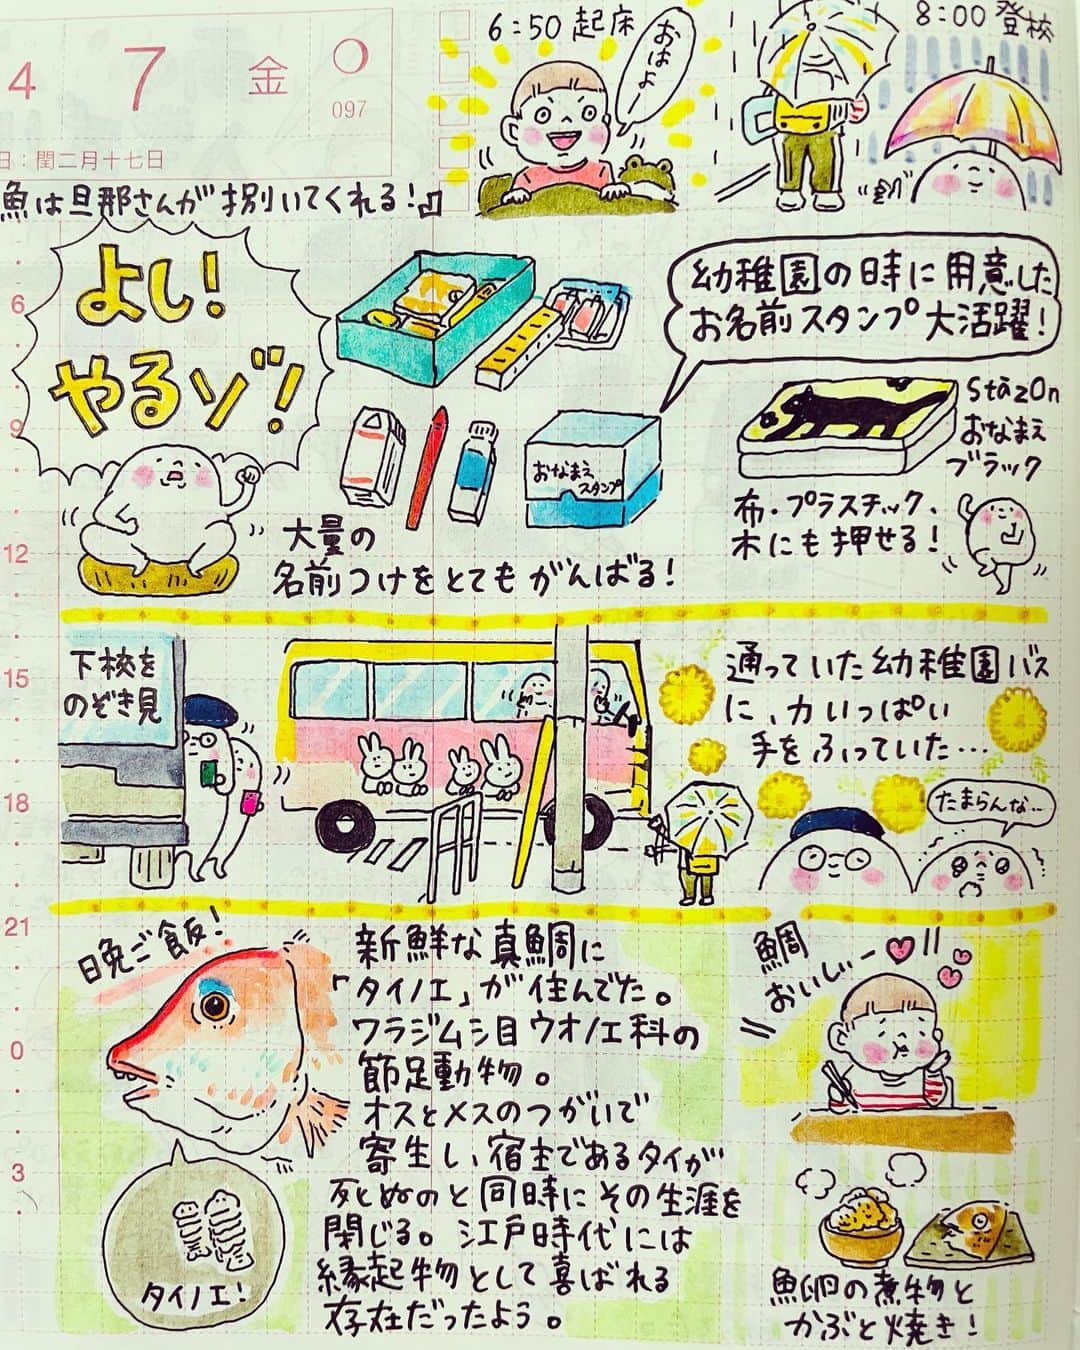 4
7
金
097
日：閏二月十七日
6:50 起床
おはよー
8:00 登校
魚は旦那さんが捌いてくれる！
よし！
やるゾ！
幼稚園の時に用意した
お名前スタンプ大活躍！
おなまえ
スタンプ
StāzOn
おなまえ
ブラック
布・プラスチック、
木にも押せる！
大量の
名前つけをとてもがんばる！
6
9
12
15
18
21
0
3
下校を
のぞき見
通っていた幼稚園バス
に、力いっぱい
手をふっていた…
たまらんな…
日晩ご飯！
新鮮な真鯛に
「タイノエ」が住んでた。
ワラジムシ目ウオノエ科の
節足動物。
オスとメスのつがいで
寄生し、宿主であるタイが
死とぬのと同時にその生涯を
閉じる。江戸時代には
縁起物として喜ばれる
存在だったよう。
タイノエ！
鯛
おいしぃー
魚卵の煮物と
かぶと焼き！